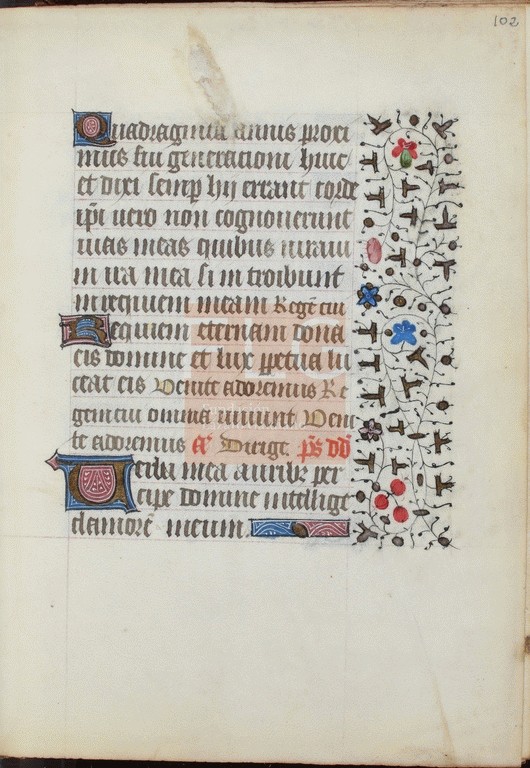 102
Quadraginta annis proxi
mus fui generationi huic
et dixi semp hij errant corde
ipi uero non cognouerunt
uias meas quibus iuraui
in ira mea si in troibunt
in requiem meam Regē cui
Requiem eternam dona
eis domine et lux ppetua lu
ceat eis Venite adoremus Re
gem cui omnia uiuunt Veni
te adoremus añ Dirige. ps dd
Uerba mea auribz per
cipe domine intellige
clamorē meum.